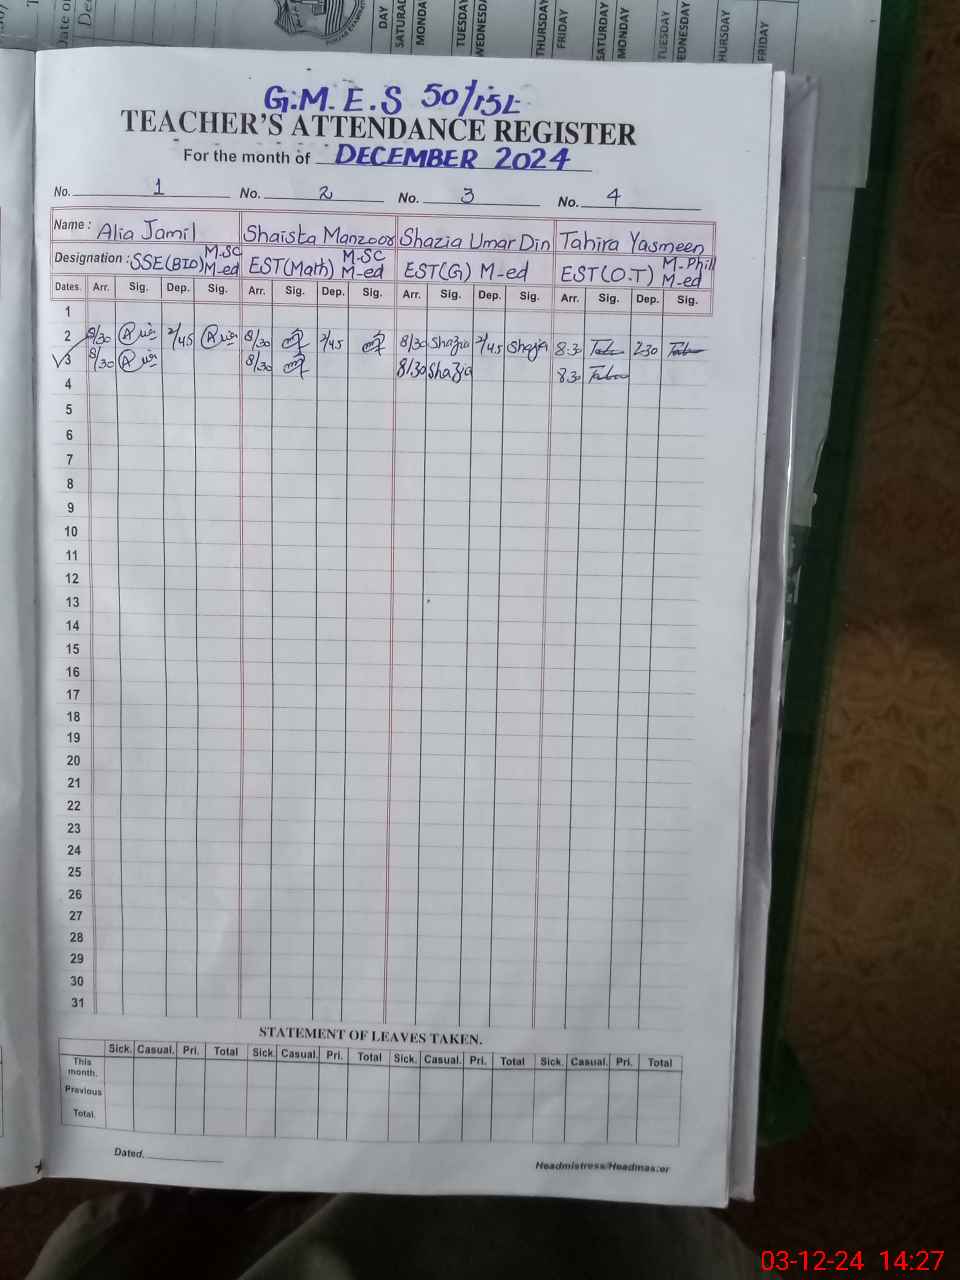 DAY SATURDAY MONDAY TUESDAY WEDNESDAY THURSDAY FRIDAY SATURDAY MONDAY TUESDAY WEDNESDAY THURSDAY FRIDAY
G.M.E.S 50/15L
TEACHER'S ATTENDANCE REGISTER
For the month of DECEMBER 2024
No. 1 No. 2 No. 3 No. 4
Name : Alia Jamil Shaista Manzoor Shazia Umar Din Tahira Yasmeen
Designation : SSE(BIO) M-SC M-ed EST(Math) M-SC M-ed EST(G) M-ed EST(O.T) M-Phill M-ed
Dates. Arr. Sig. Dep. Sig. Arr. Sig. Dep. Sig. Arr. Sig. Dep. Sig. Arr. Sig. Dep. Sig.
1
2 8/30 2/45 8/30 2/45 8/30 Shazia 2/45 Shazia 8:30 2:30
3 8/30 8/30 8/30 Shazia 8:30
4
5
6
7
8
9
10
11
12
13
14
15
16
17
18
19
20
21
22
23
24
25
26
27
28
29
30
31
STATEMENT OF LEAVES TAKEN.
Sick. Casual. Pri. Total Sick. Casual. Pri. Total Sick. Casual. Pri. Total Sick. Casual. Pri. Total
This month.
Previous
Total.
Dated.
Headmistress/Headmaster
03-12-24 14:27